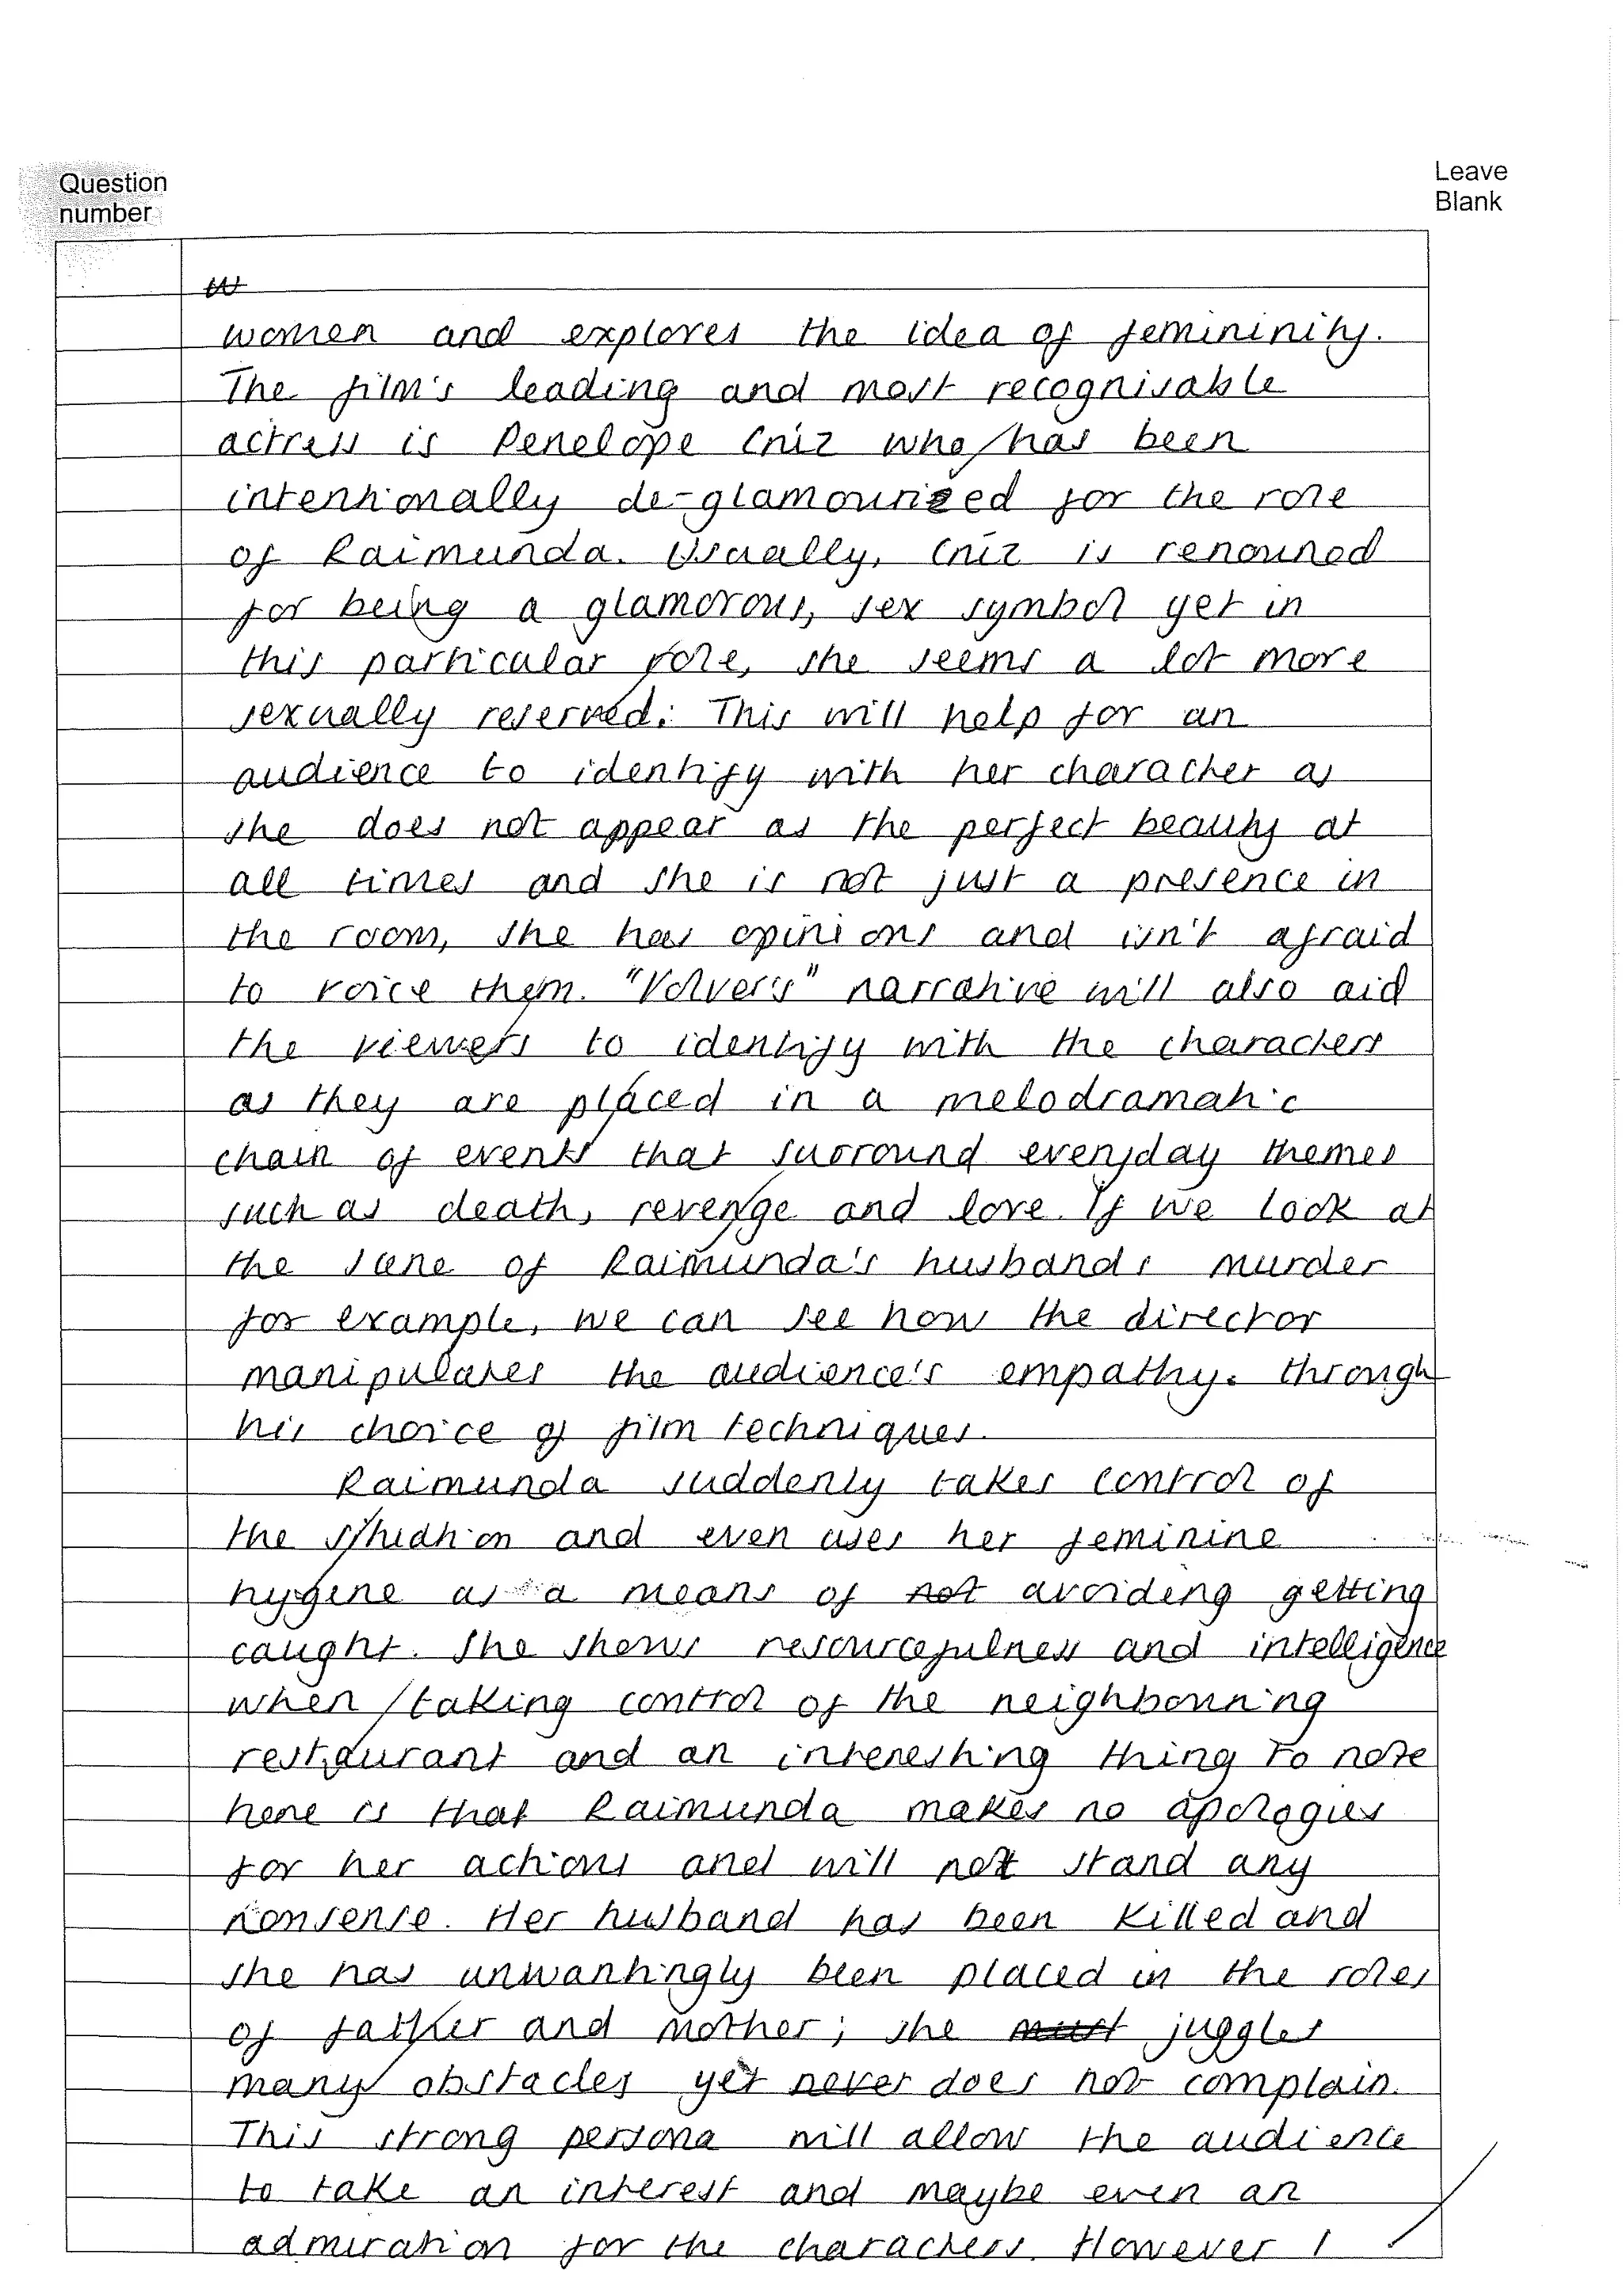 Question
number
Leave
Blank
women and explores the idea of femininity.
The film's leading and most recognisable
actress is Penelope Cruz who has been
intentionally de-glamourized for the role
of Raimunda. Usually, Cruz is renouned
for being a glamorous, sex symbol yet in
this particular role, she seems a lot more
sexually reserved. This will help for an
audience to identify with her character as
she does not appear as the perfect beauty at
all times and she is not just a presence in
the room, she has opinions and isn't afraid
to voice them. "Volver's" narrative will also aid
the viewers to identify with the characters
as they are placed in a melodramatic
chain of events that surround everyday themes
such as death, revenge and love. If we look at
the scene of Raimunda's husbands murder
for example, we can see how the director
manipulates the audience's empathy. through
his choice of film techniques.
Raimunda suddenly takes control of
the situation and even uses her feminine
hygene as a means of not avoiding getting
caught. She shows resourcefulness and intelligence
when taking control of the neighbouring
restaurant and an interesting thing to note
here is that Raimunda makes no apologies
for her actions and will not stand any
nonsense. Her husband has been killed and
she has unwantingly been placed in the roles
of father and mother; she must juggles
many obstacles yet never does not complain.
This strong persona will allow the audience
to take an interest and maybe even an
admiration for the characters. However I